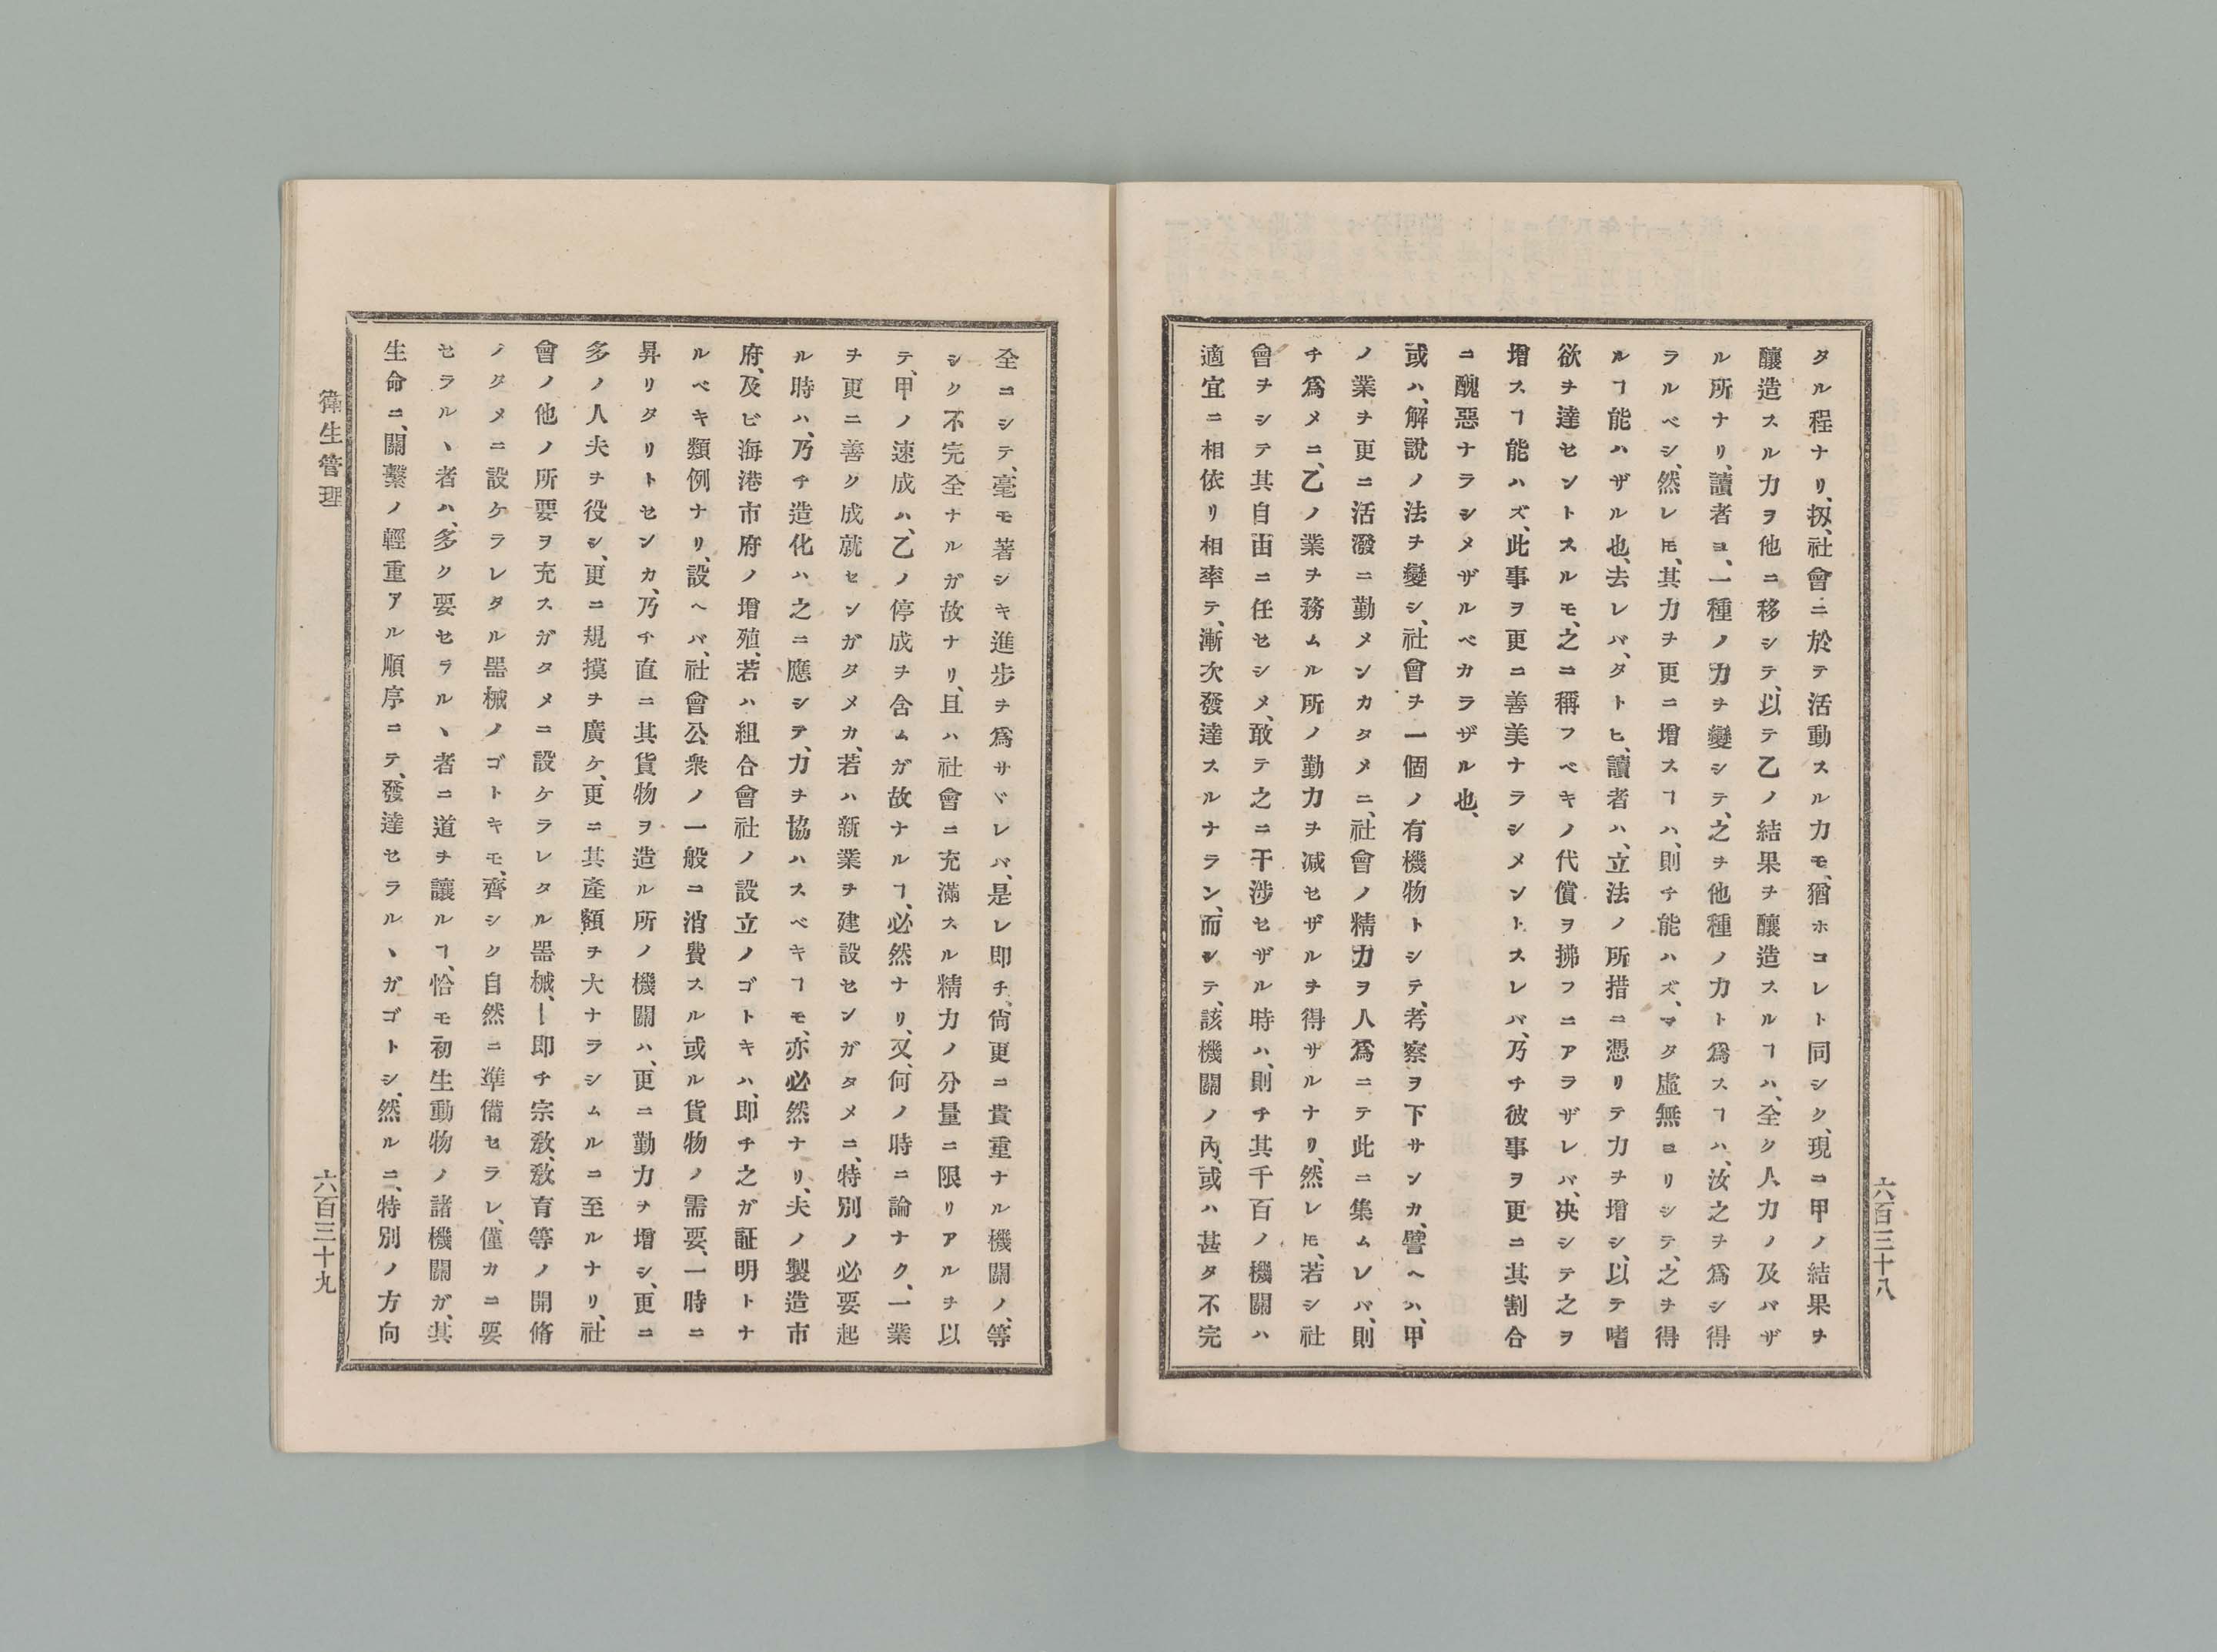 タル程ナリ、扨、社會ニ於テ活動スル力モ、猶ホコレト同シク、現ニ甲ノ結果ヲ
釀造スル力ヲ他ニ移シテ、以テ乙ノ結果ヲ釀造スルヿハ、全ク人力ノ及バザ
ル所ナリ、讀者ヨ、一種ノ力ヲ變シテ、之ヲ他種ノ力ト爲スヿハ、汝之ヲ爲シ得
ラルベシ、然レ𪜈、其力ヲ更ニ增スヿハ、則チ能ハズ、マタ虛無ヨリシテ、之ヲ得
ルヿ能ハザル也、去レバ、タトヒ、讀者ハ、立法ノ所措ニ憑リテ力ヲ增シ、以テ嗜
欲ヲ達セントスルモ、之ニ稱フベキノ代償ヲ拂フニアラザレバ、决シテ之ヲ
增スヿ能ハズ、此事ヲ更ニ善美ナラシメントスレバ、乃チ彼事ヲ更ニ其割合
ニ醜惡ナラシメザルベカラザル也、
或ハ、解說ノ法ヲ變シ、社會ヲ一個ノ有機物トシテ、考察ヲ下サンカ、譬ヘハ、甲
ノ業ヲ更ニ活潑ニ勤メンカタメニ、社會ノ精力ヲ人爲ニテ此ニ集ムレバ、則
チ爲メニ、乙ノ業ヲ務ムル所ノ勤力ヲ减セザルヲ得サルナリ、然レ𪜈、若シ社
會ヲシテ其自由ニ任セシメ、敢テ之ニ干涉セザル時ハ、則チ其千百ノ機關ハ
適宜ニ相依リ相率テ、漸次發達スルナラン、而シテ、該機關ノ內、或ハ甚タ不完
六百三十八
全ニシテ、毫モ著シキ進步ヲ爲サヾレバ、是レ即チ、尙更ニ貴重ナル機關ノ、等
シク不完全ナルガ故ナリ、且ハ社會ニ充滿スル精力ノ分量ニ限リアルヲ以
テ、甲ノ速成ハ、乙ノ停成ヲ含ムガ故ナルヿ、必然ナリ、又、何ノ時ニ論ナク、一業
ヲ更ニ善ク成就センガタメカ、若ハ新業ヲ建設センガタメニ、特別ノ必要起
ル時ハ、乃チ造化ハ之ニ應シテ、力ヲ協ハスベキヿモ、亦必然ナリ、夫ノ製造市
府、及ビ海港市府ノ增殖、若ハ組合會社ノ設立ノゴトキハ、即チ之ガ証明トナ
ルベキ類例ナリ、設ヘバ、社會公衆ノ一般ニ消費スル或ル貨物ノ需要、一時ニ
昇リタリトセンカ、乃チ直ニ其貨物ヲ造ル所ノ機關ハ、更ニ勤力ヲ增シ、更ニ
多ノ人夫ヲ役シ、更ニ規摸ヲ廣ケ、更ニ其產額ヲ大ナラシムルニ至ルナリ、社
會ノ他ノ所要ヲ充スガタメニ設ケラレタル器械、―即チ宗敎、敎育等ノ開脩
ノタメニ設ケラレタル器械ノゴトキモ、齊シク自然ニ凖備セラレ、僅カニ要
セラル、者ハ、多ク要セラル、者ニ道ヲ讓ルヿ、恰モ初生動物ノ諸機關ガ、其
生命ニ、關繫ノ輕重アル順序ニテ、發達セラル、ガゴトシ、然ルニ、特別ノ方向
衛生管理
六百三十九